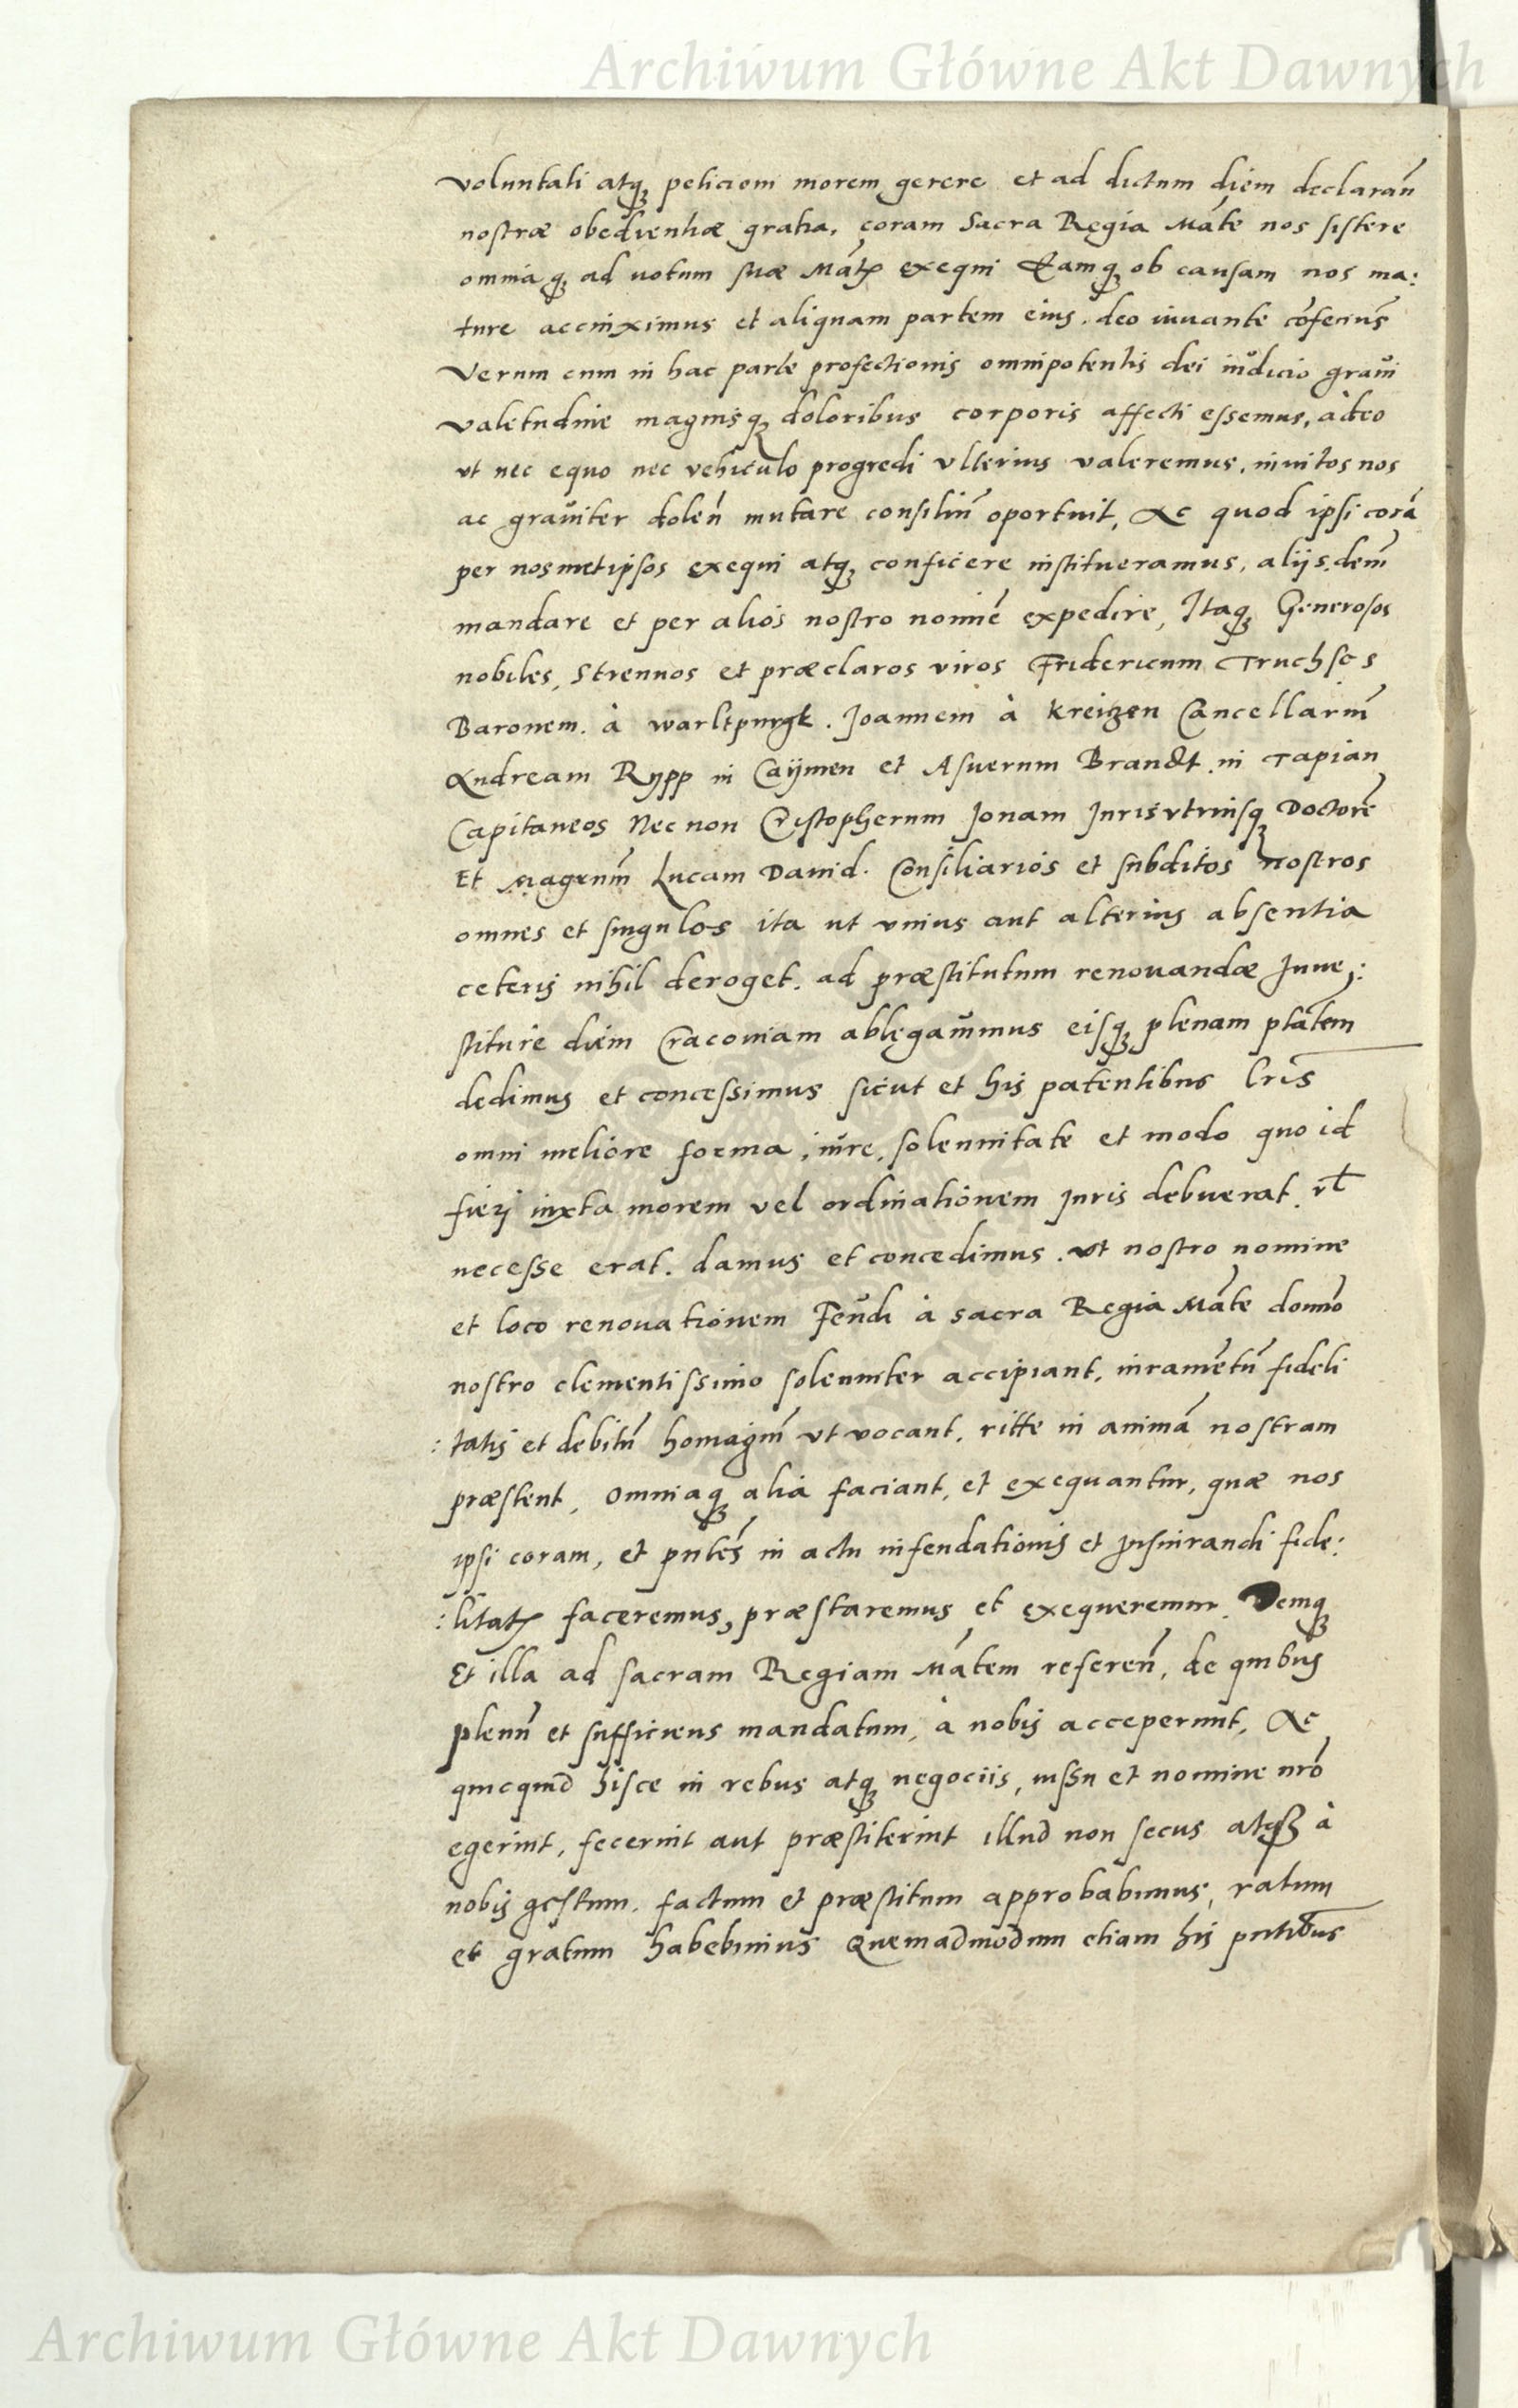 Archiwum Główne Akt Dawnych
voluntati atq3 peticioni morem gerere et ad dictum diem declarañ
nostræ obedientiæ gratia, coram Sacra Regia Mãte nos sistere
omniaq3 ad uotum suæ Mãtis exequi Eamq3 ob causam nos ma:
ture accinximus et aliquam partem eius, deo iuuante cõfecimꝰ
Verum cum in hac parte profectionis omnipotentis dei iudicio graui
valetudine magnisq3 doloribus corporis affecti essemus, àdeo
vt nec equo nec vehiculo progredi vlterius valeremus, inuitos nos
ac grauiter doleñ mutare consiliũ oportuit, Ac quod ipsi corã
per nosmetipsos exequi atq3 conficere institueramus, aliis dem̃
mandare et per alios nostro nomiẽ expedire, Itaq3 Generosos
nobiles, Strennos et præclaros viros Fridericum Truchses
Baronem à warltpurgk. Joannem à Kreizen Cancellariũ
Andream Rypp in Caÿmen et Asuerum Brandt in Tapian
Capitaneos Nec non Cristopherum Jonam Juris vtriusq3 Doctorẽ
Et Magrum̃ Lucam Dauid. Consiliarios et subditos nostros
omnes et singulos ita ut vnius aut alterius absentia
ceteris nihil deroget. ad præstitutum renouandæ Inue,:
stiture diem Cracouiam ablegauimus eisq3 plenam ptãtem
dedimus et concessimus sicut et his patentibus lrĩs
omni meliore forma, iure, solennitate et modo quo id
fieri iuxta morem vel ordinationem Juris debuerat. vł
necesse erat. damus et concedimus. vt nostro nomine
et loco renouationem Feudi à sacra Regia Mãte domño
nostro clementissimo solenniter accipiant, iuramẽtũ fideli
:tatis et debitũ homagiũ vt vocant. ritte in animã nostram
præstent, omniaq3 alia faciant, et exequantur, quæ nos
ipsi coram, et pñtes in actu infeudationis et Jusiurandi fide:
:litatis faceremus, præstaremus et exequeremur. Demq3
Et illa ad sacram Regiam Mãtem refereñ, de quibus
plenũ et sufficiens mandatum, à nobis acceperunt, Ac
quicquid hisce in rebus atq3 negociis, iussu et nomine nrõ
egerint, fecerint aut præstiterint illud non secus atq3 à
nobis gestum. factum et præstitum approbabimus, ratum
et gratum habebimus Quemadmodum etiam his pñtibus
Archiwum Główne Akt Dawnych